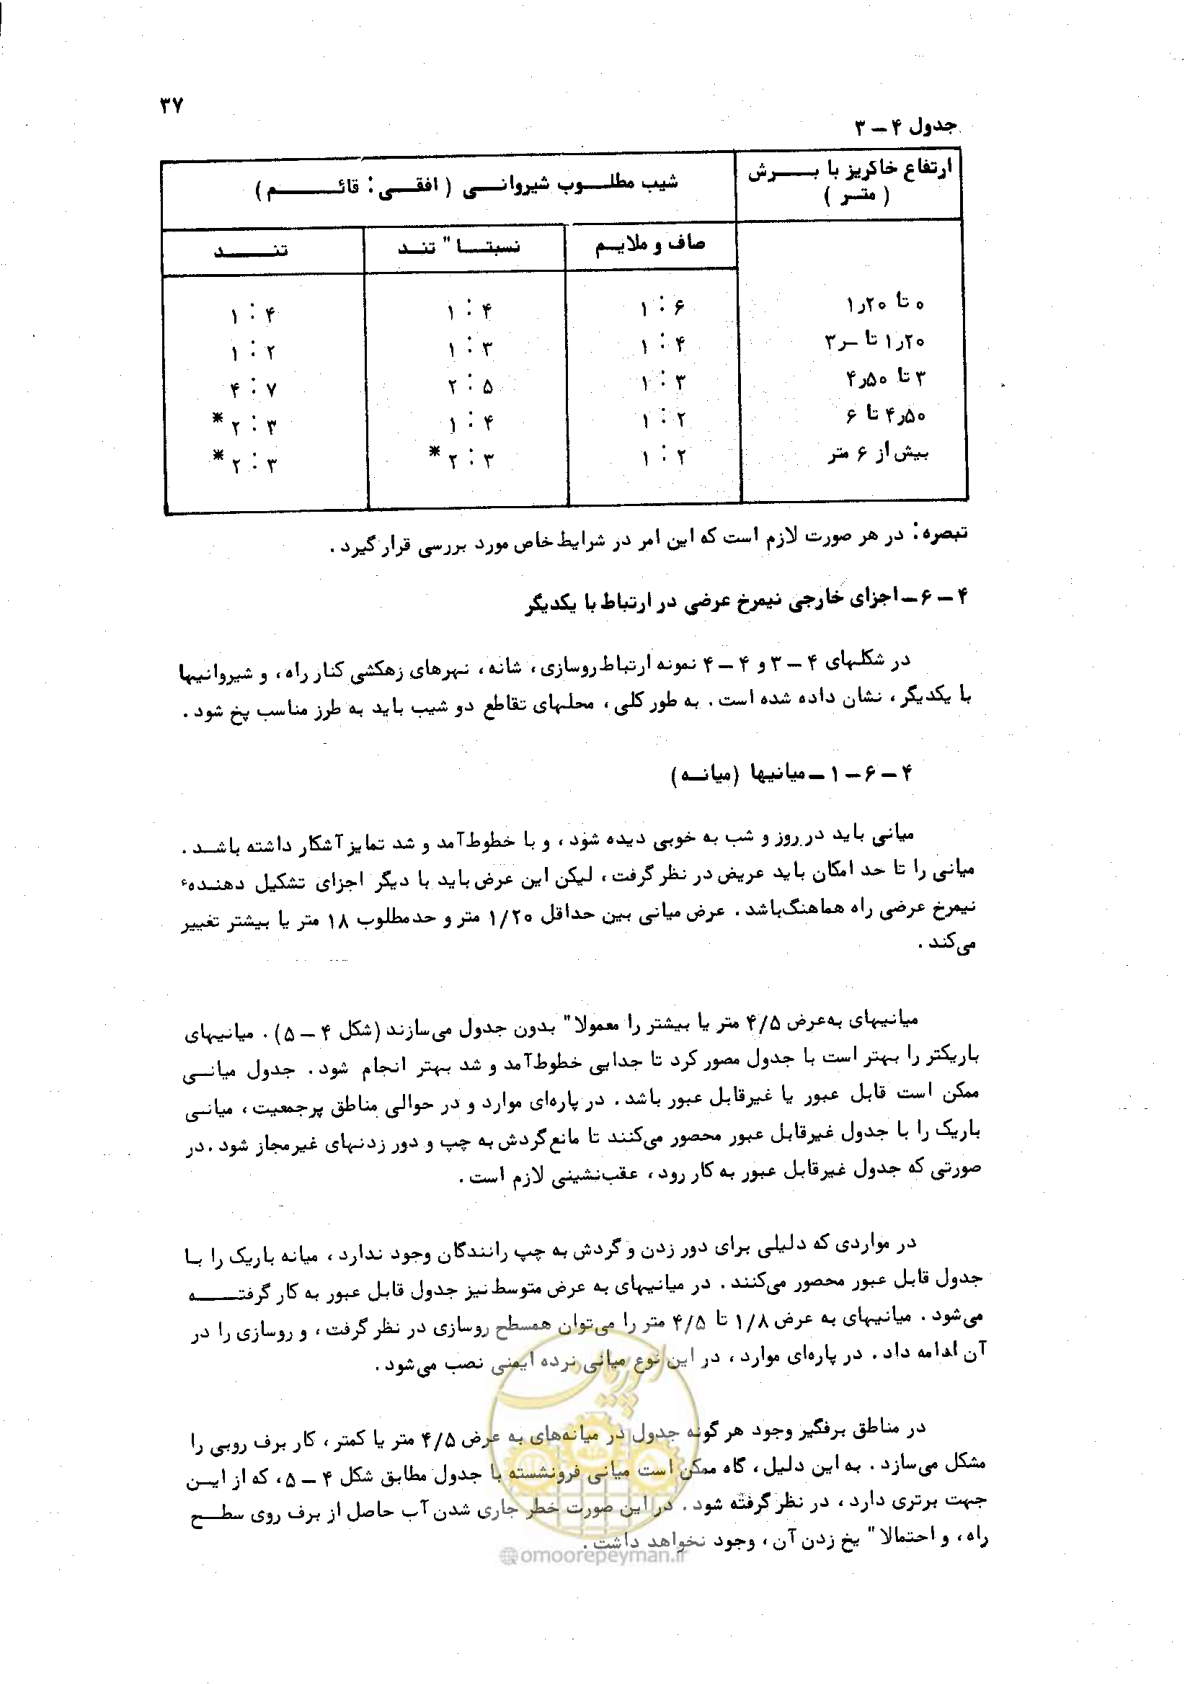 ۳۷
جدول ۴ – ۳
ارتفاع خاکریز با برش شیب مطلوب شیروانی ( افقی : قائم )
( متر )
صاف و ملایم نسبتا" تند تند
۰ تا ۱٫۲۰ ۶ : ۱ ۴ : ۱ ۴ : ۱
۱٫۲۰ تا ۳٫– ۴ : ۱ ۳ : ۱ ۲ : ۱
۳ تا ۴٫۵۰ ۳ : ۱ ۵ : ۲ ۷ : ۴
۴٫۵۰ تا ۶ ۲ : ۱ ۴ : ۱ ۳ : ۲ *
بیش از ۶ متر ۲ : ۱ ۳ : ۲ * ۳ : ۲ *
تبصره : در هر صورت لازم است که این امر در شرایط خاص مورد بررسی قرار گیرد .
۴ – ۶ – اجزای خارجی نیمرخ عرضی در ارتباط با یکدیگر
در شکلهای ۴ – ۳ و ۴ – ۴ نمونه ارتباط روسازی ، شانه ، نهرهای زهکشی کنار راه ، و شیروانیها
با یکدیگر ، نشان داده شده است . به طور کلی ، محلهای تقاطع دو شیب باید به طرز مناسب پخ شود .
۴ – ۶ – ۱ – میانیها (میانه)
میانی باید در روز و شب به خوبی دیده شود ، و با خطوط آمد و شد تمایز آشکار داشته باشد .
میانی را تا حد امکان باید عریض در نظر گرفت ، لیکن این عرض باید با دیگر اجزای تشکیل دهندهء
نیمرخ عرضی راه هماهنگ باشد . عرض میانی بین حداقل ۱/۲۰ متر و حد مطلوب ۱۸ متر یا بیشتر تغییر
می‌کند .
میانیهای به‌عرض ۴/۵ متر یا بیشتر را معمولا" بدون جدول می‌سازند (شکل ۴ – ۵) . میانیهای
باریکتر را بهتر است با جدول مصور کرد تا جدایی خطوط آمد و شد بهتر انجام شود . جدول میانی
ممکن است قابل عبور یا غیرقابل عبور باشد . در پاره‌ای موارد و در حوالی مناطق پرجمعیت ، میانی
باریک را با جدول غیرقابل عبور محصور می‌کنند تا مانع گردش به چپ و دور زدنهای غیرمجاز شود . در
صورتی که جدول غیرقابل عبور به کار رود ، عقب‌نشینی لازم است .
در مواردی که دلیلی برای دور زدن و گردش به چپ رانندگان وجود ندارد ، میانه باریک را با
جدول قابل عبور محصور می‌کنند . در میانیهای به عرض متوسط نیز جدول قابل عبور به کار گرفته
می‌شود . میانیهای به عرض ۱/۸ تا ۴/۵ متر را می‌توان همسطح روسازی در نظر گرفت ، و روسازی را در
آن ادامه داد . در پاره‌ای موارد ، در این نوع میانی نرده ایمنی نصب می‌شود .
در مناطق برفگیر وجود هر گونه جدول در میانه‌های به عرض ۴/۵ متر یا کمتر ، کار برف روبی را
مشکل می‌سازد . به این دلیل ، گاه ممکن است میانی فرونشسته با جدول مطابق شکل ۴ – ۵ ، که از این
جهت برتری دارد ، در نظر گرفته شود . در این صورت خطر جاری شدن آب حاصل از برف روی سطح
راه ، و احتمالا" یخ زدن آن ، وجود نخواهد داشت .
امور پیمان
@omoorepeyman.ir